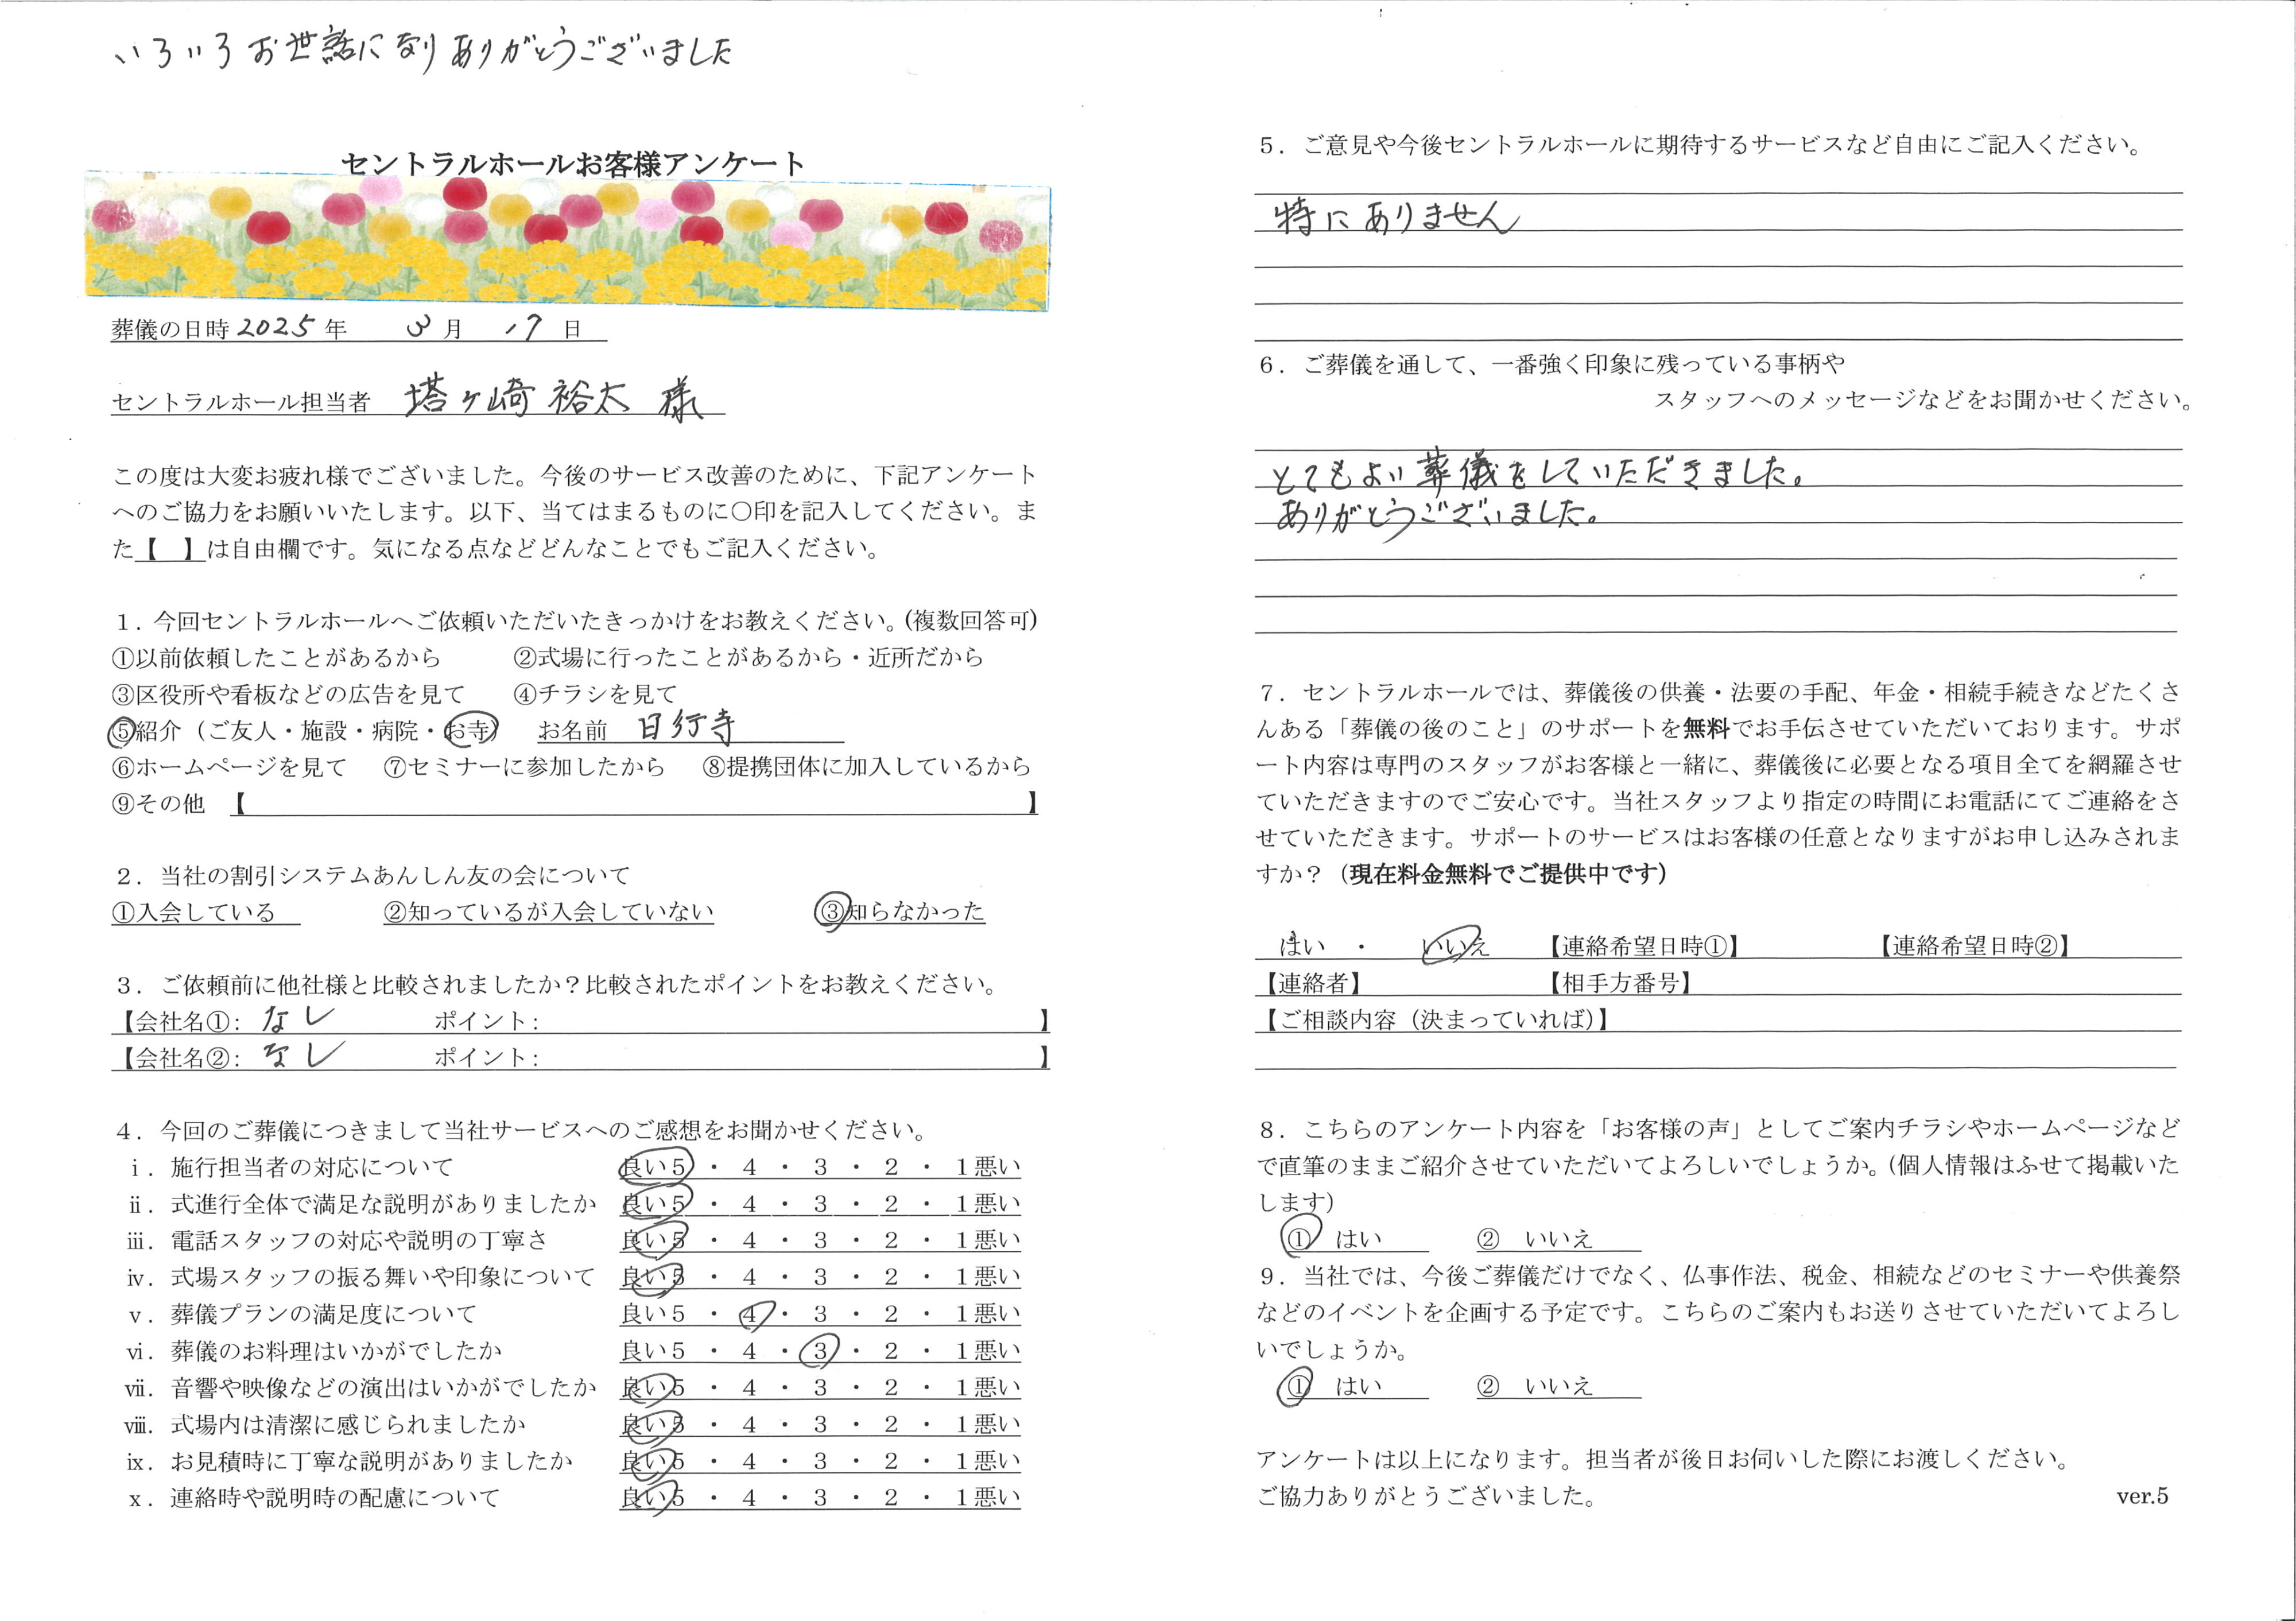 いろいろお世話になりありがとうございました
セントラルホールお客様アンケート
葬儀の日時 2025 年 3 月 17 日
セントラルホール担当者 塔ヶ崎 裕太 様
この度は大変お疲れ様でございました。今後のサービス改善のために、下記アンケート
へのご協力をお願いいたします。以下、当てはまるものに〇印を記入してください。ま
た【 】は自由欄です。気になる点などどんなことでもご記入ください。
1．今回セントラルホールへご依頼いただいたきっかけをお教えください。(複数回答可)
①以前依頼したことがあるから ②式場に行ったことがあるから・近所だから
③区役所や看板などの広告を見て ④チラシを見て
⑤紹介（ご友人・施設・病院・お寺） お名前 日行寺
⑥ホームページを見て ⑦セミナーに参加したから ⑧提携団体に加入しているから
⑨その他 【 】
2．当社の割引システムあんしん友の会について
①入会している ②知っているが入会していない ③知らなかった
3．ご依頼前に他社様と比較されましたか？比較されたポイントをお教えください。
【会社名①: なし ポイント: 】
【会社名②: なし ポイント: 】
4．今回のご葬儀につきまして当社サービスへのご感想をお聞かせください。
ⅰ．施行担当者の対応について 良い5 ・ 4 ・ 3 ・ 2 ・ 1悪い
ⅱ．式進行全体で満足な説明がありましたか 良い5 ・ 4 ・ 3 ・ 2 ・ 1悪い
ⅲ．電話スタッフの対応や説明の丁寧さ 良い5 ・ 4 ・ 3 ・ 2 ・ 1悪い
ⅳ．式場スタッフの振る舞いや印象について 良い5 ・ 4 ・ 3 ・ 2 ・ 1悪い
ⅴ．葬儀プランの満足度について 良い5 ・ 4 ・ 3 ・ 2 ・ 1悪い
ⅵ．葬儀のお料理はいかがでしたか 良い5 ・ 4 ・ 3 ・ 2 ・ 1悪い
ⅶ．音響や映像などの演出はいかがでしたか 良い5 ・ 4 ・ 3 ・ 2 ・ 1悪い
ⅷ．式場内は清潔に感じられましたか 良い5 ・ 4 ・ 3 ・ 2 ・ 1悪い
ⅸ．お見積時に丁寧な説明がありましたか 良い5 ・ 4 ・ 3 ・ 2 ・ 1悪い
ⅹ．連絡時や説明時の配慮について 良い5 ・ 4 ・ 3 ・ 2 ・ 1悪い
5．ご意見や今後セントラルホールに期待するサービスなど自由にご記入ください。
特にありません
6．ご葬儀を通して、一番強く印象に残っている事柄や
スタッフへのメッセージなどをお聞かせください。
とてもよい葬儀をしていただきました。
ありがとうございました。
7．セントラルホールでは、葬儀後の供養・法要の手配、年金・相続手続きなどたくさ
んある「葬儀の後のこと」のサポートを無料でお手伝させていただいております。サポ
ート内容は専門のスタッフがお客様と一緒に、葬儀後に必要となる項目全てを網羅させ
ていただきますのでご安心です。当社スタッフより指定の時間にお電話にてご連絡をさ
せていただきます。サポートのサービスはお客様の任意となりますがお申し込みされま
すか？（現在料金無料でご提供中です）
はい ・ いいえ 【連絡希望日時①】 【連絡希望日時②】
【連絡者】 【相手方番号】
【ご相談内容（決まっていれば）】
8．こちらのアンケート内容を「お客様の声」としてご案内チラシやホームページなど
で直筆のままご紹介させていただいてよろしいでしょうか。(個人情報はふせて掲載いた
します)
① はい ② いいえ
9．当社では、今後ご葬儀だけでなく、仏事作法、税金、相続などのセミナーや供養祭
などのイベントを企画する予定です。こちらのご案内もお送りさせていただいてよろし
いでしょうか。
① はい ② いいえ
アンケートは以上になります。担当者が後日お伺いした際にお渡しください。
ご協力ありがとうございました。 ver.5